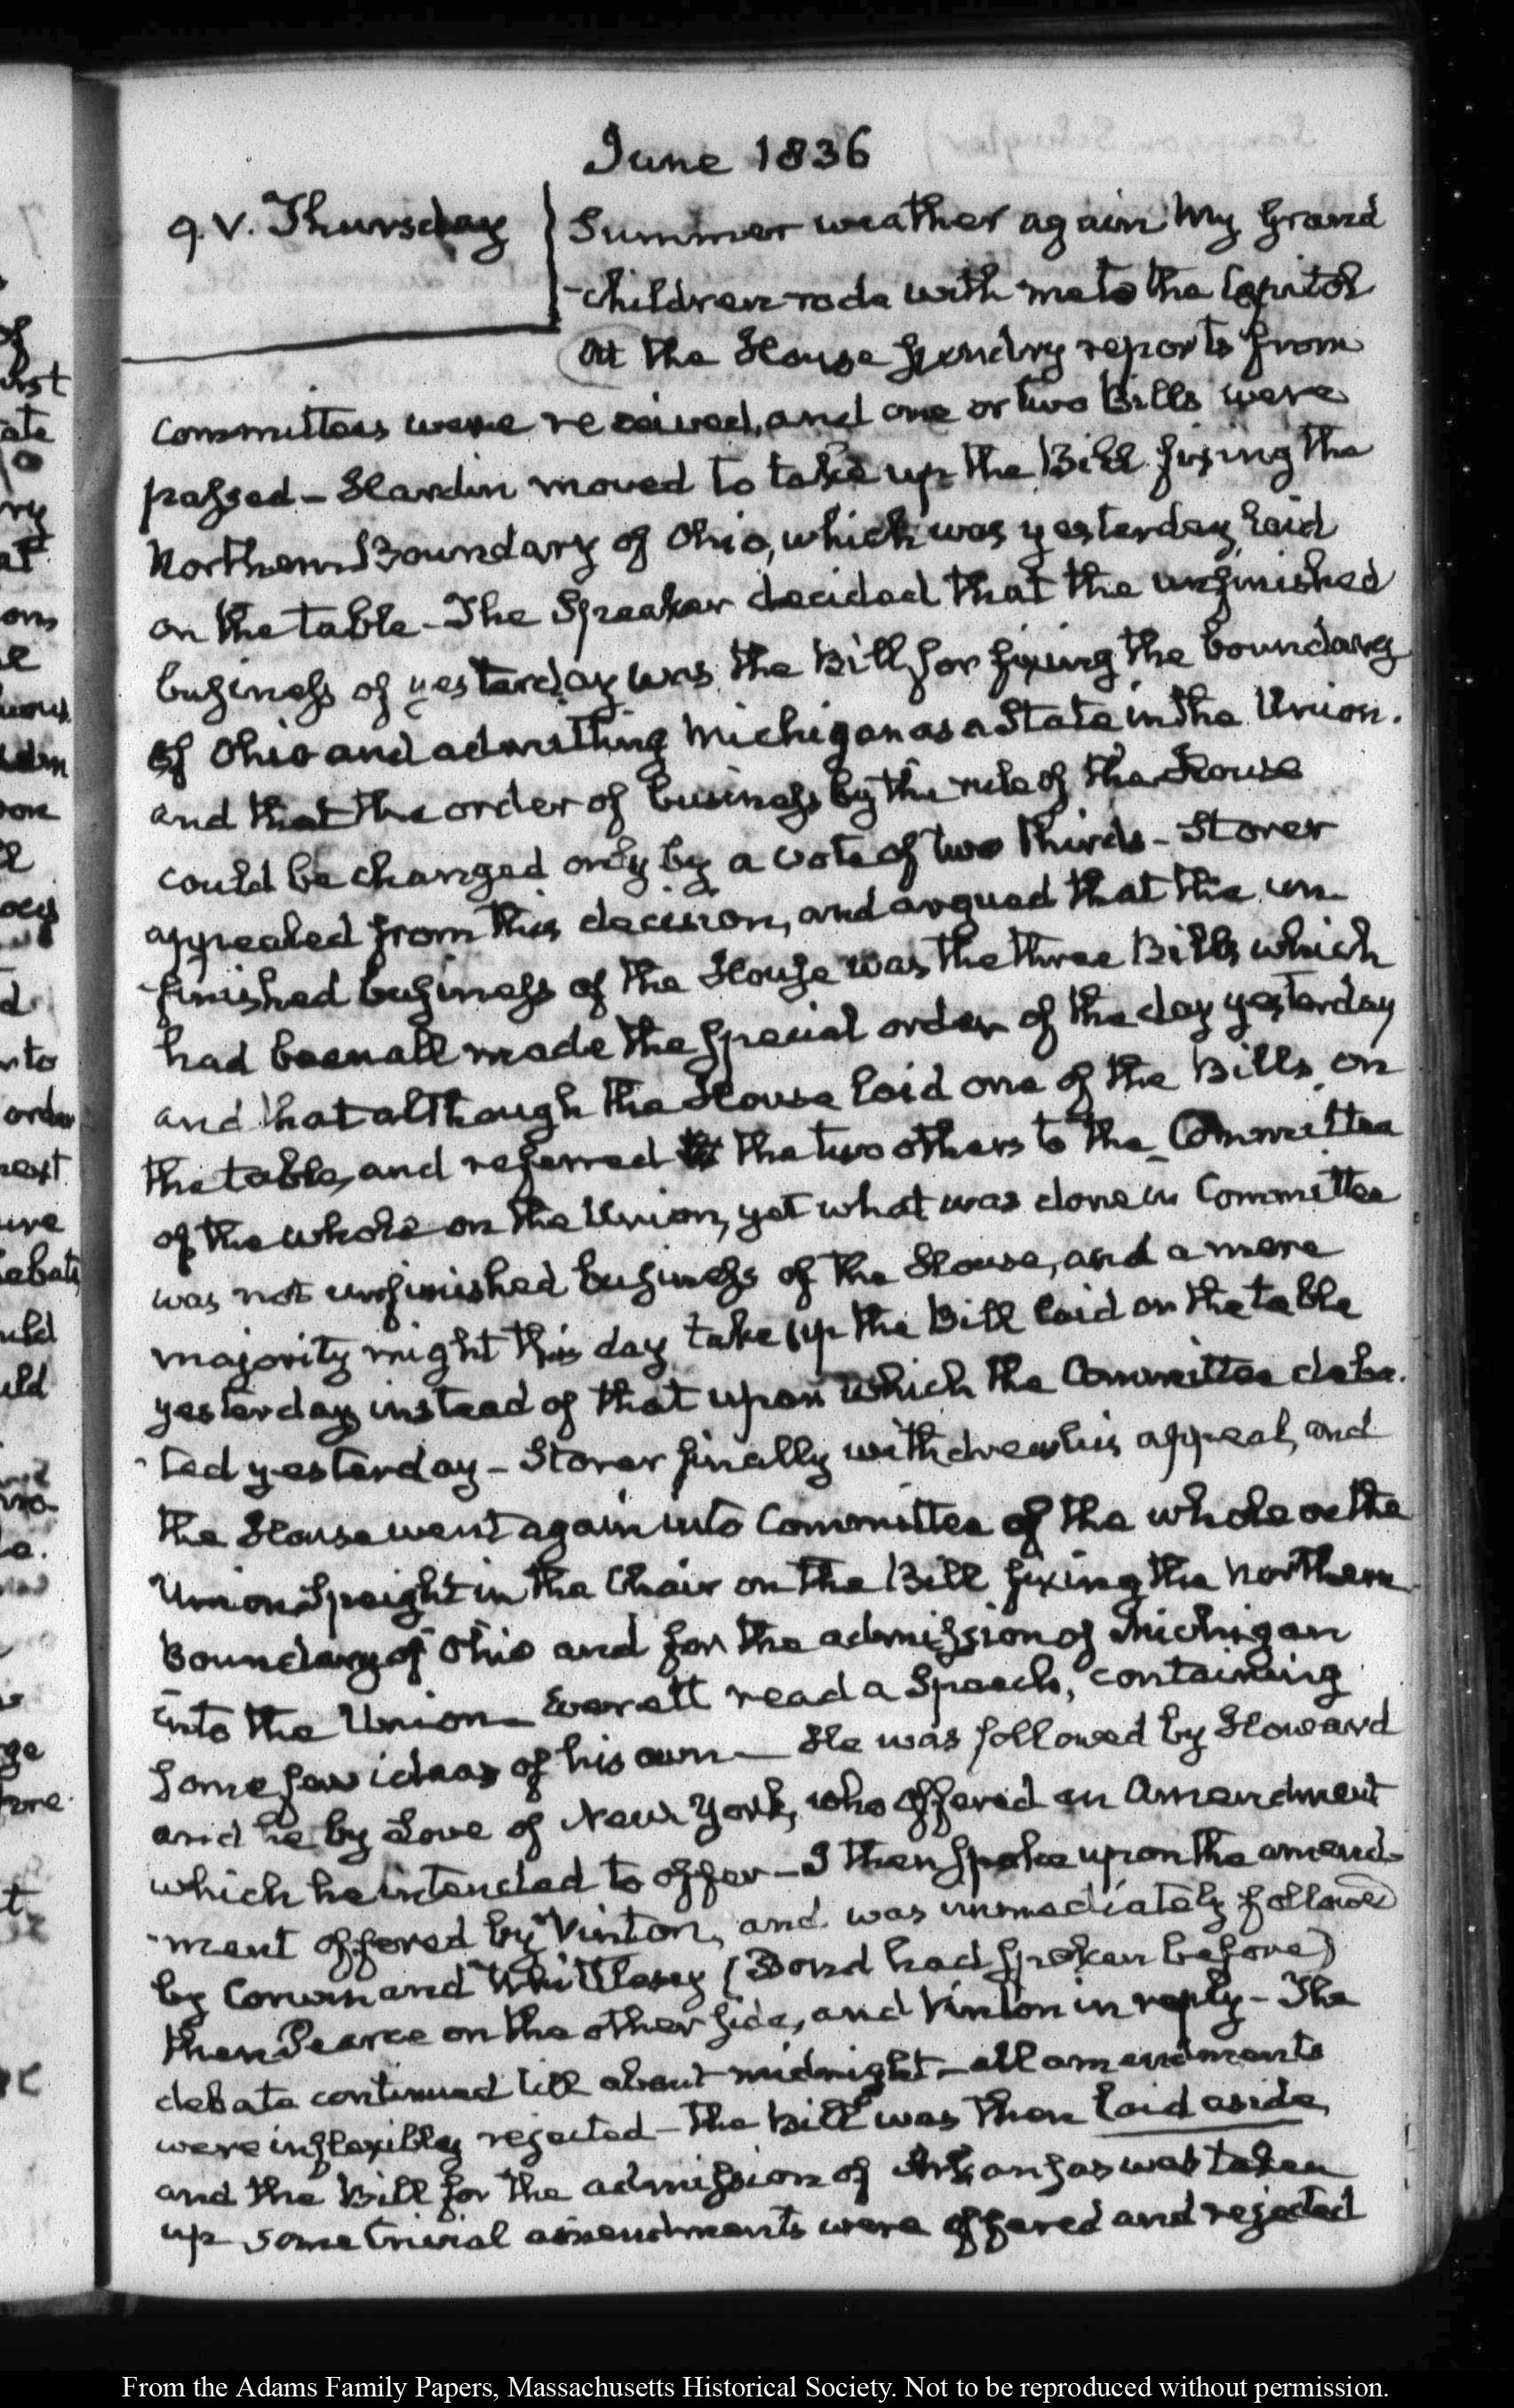 June 1836
9. V. Thursday
Summer weather again My Grand
-children rode with me to the Capitol
At the House sundry reports from
Committees were received, and one or two Bills were
passed – Hardin moved to take up the Bill fixing the
Northern Boundary of Ohio, which was yesterday laid
on the table – The Speaker decided that the unfinished
business of yesterday was the Bill for fixing the boundary
of Ohio and admitting Michigan as a State in the Union.
and that the order of business by the rule of the House
could be changed only by a vote of two thirds – Storer
appealed from this decision, and argued that the un-
-finished business of the House was the three Bills which
had been all made the special order of the day yesterday
and that although the House laid one of the Bills on
the table, and referred the two others to the Committee
of the whole on the Union, yet what was done in Committee
was not unfinished business of the House, and a mere
majority might this day take up the Bill laid on the table
yesterday instead of that upon which the Committee deba-
-ted yesterday – Storer finally withdrew his appeal, and
the House went again into Committee of the whole on the
Union Speight in the Chair on the Bill fixing the Northern
Boundary of Ohio and for the admission of Michigan
into the Union – Everett read a Speech, containing
some few ideas of his own – He was followed by Howard
and he by Love of New York, who offered an Amendment
which he intended to offer – I then spoke upon the amend-
-ment offered by Vinton, and was immediately followed
by Corwin and Whittlesey (Bond had spoken before)
then Pearce on the other side, and Vinton in reply – The
debate continued till about midnight – all amendments
were inflexibly rejected – The Bill was then laid aside,
and the Bill for the admission of Arkansas was taken
up some trivial amendments were offered and rejected
of
ate
ry
at
ons
e
on
d
into
order
next
ure
ebate
uld
uld
ge
t
From the Adams Family Papers, Massachusetts Historical Society. Not to be reproduced without permission.